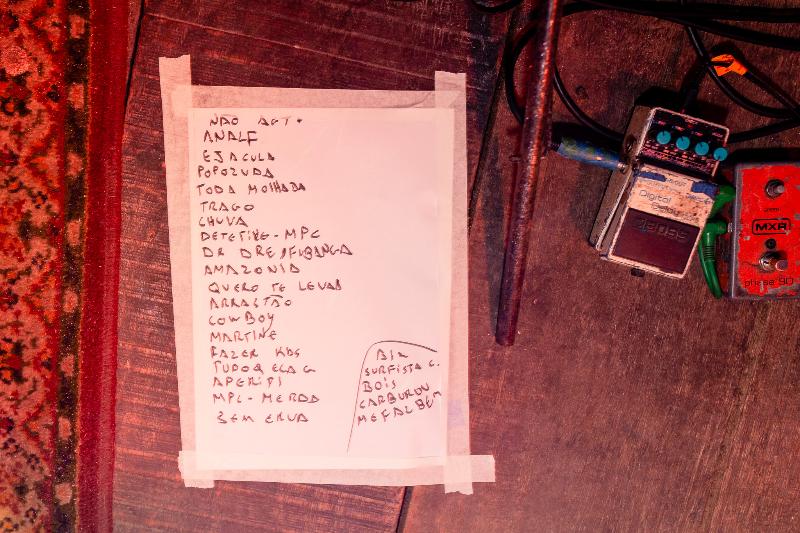 NÃO AGT.
ANALF
EJACULA
POPOZUDA
TODA MOLHADA
TRAGO
CHUVA
DETETIVE-MPC
DR DRE/FUBANGA
AMAZONIA
QUERO TE LEVAR
ARRASTÃO
COWBOY
MARTINE
FAZER KBS
TUDO Q ELA G
APERIPI
MPC-MERDA
SEM ERVA
BIZ
SURFISTA C.
BOIS
CARBUROU
ME FAZ BEM
Digital Delay
BOSS
MXR
phase 90